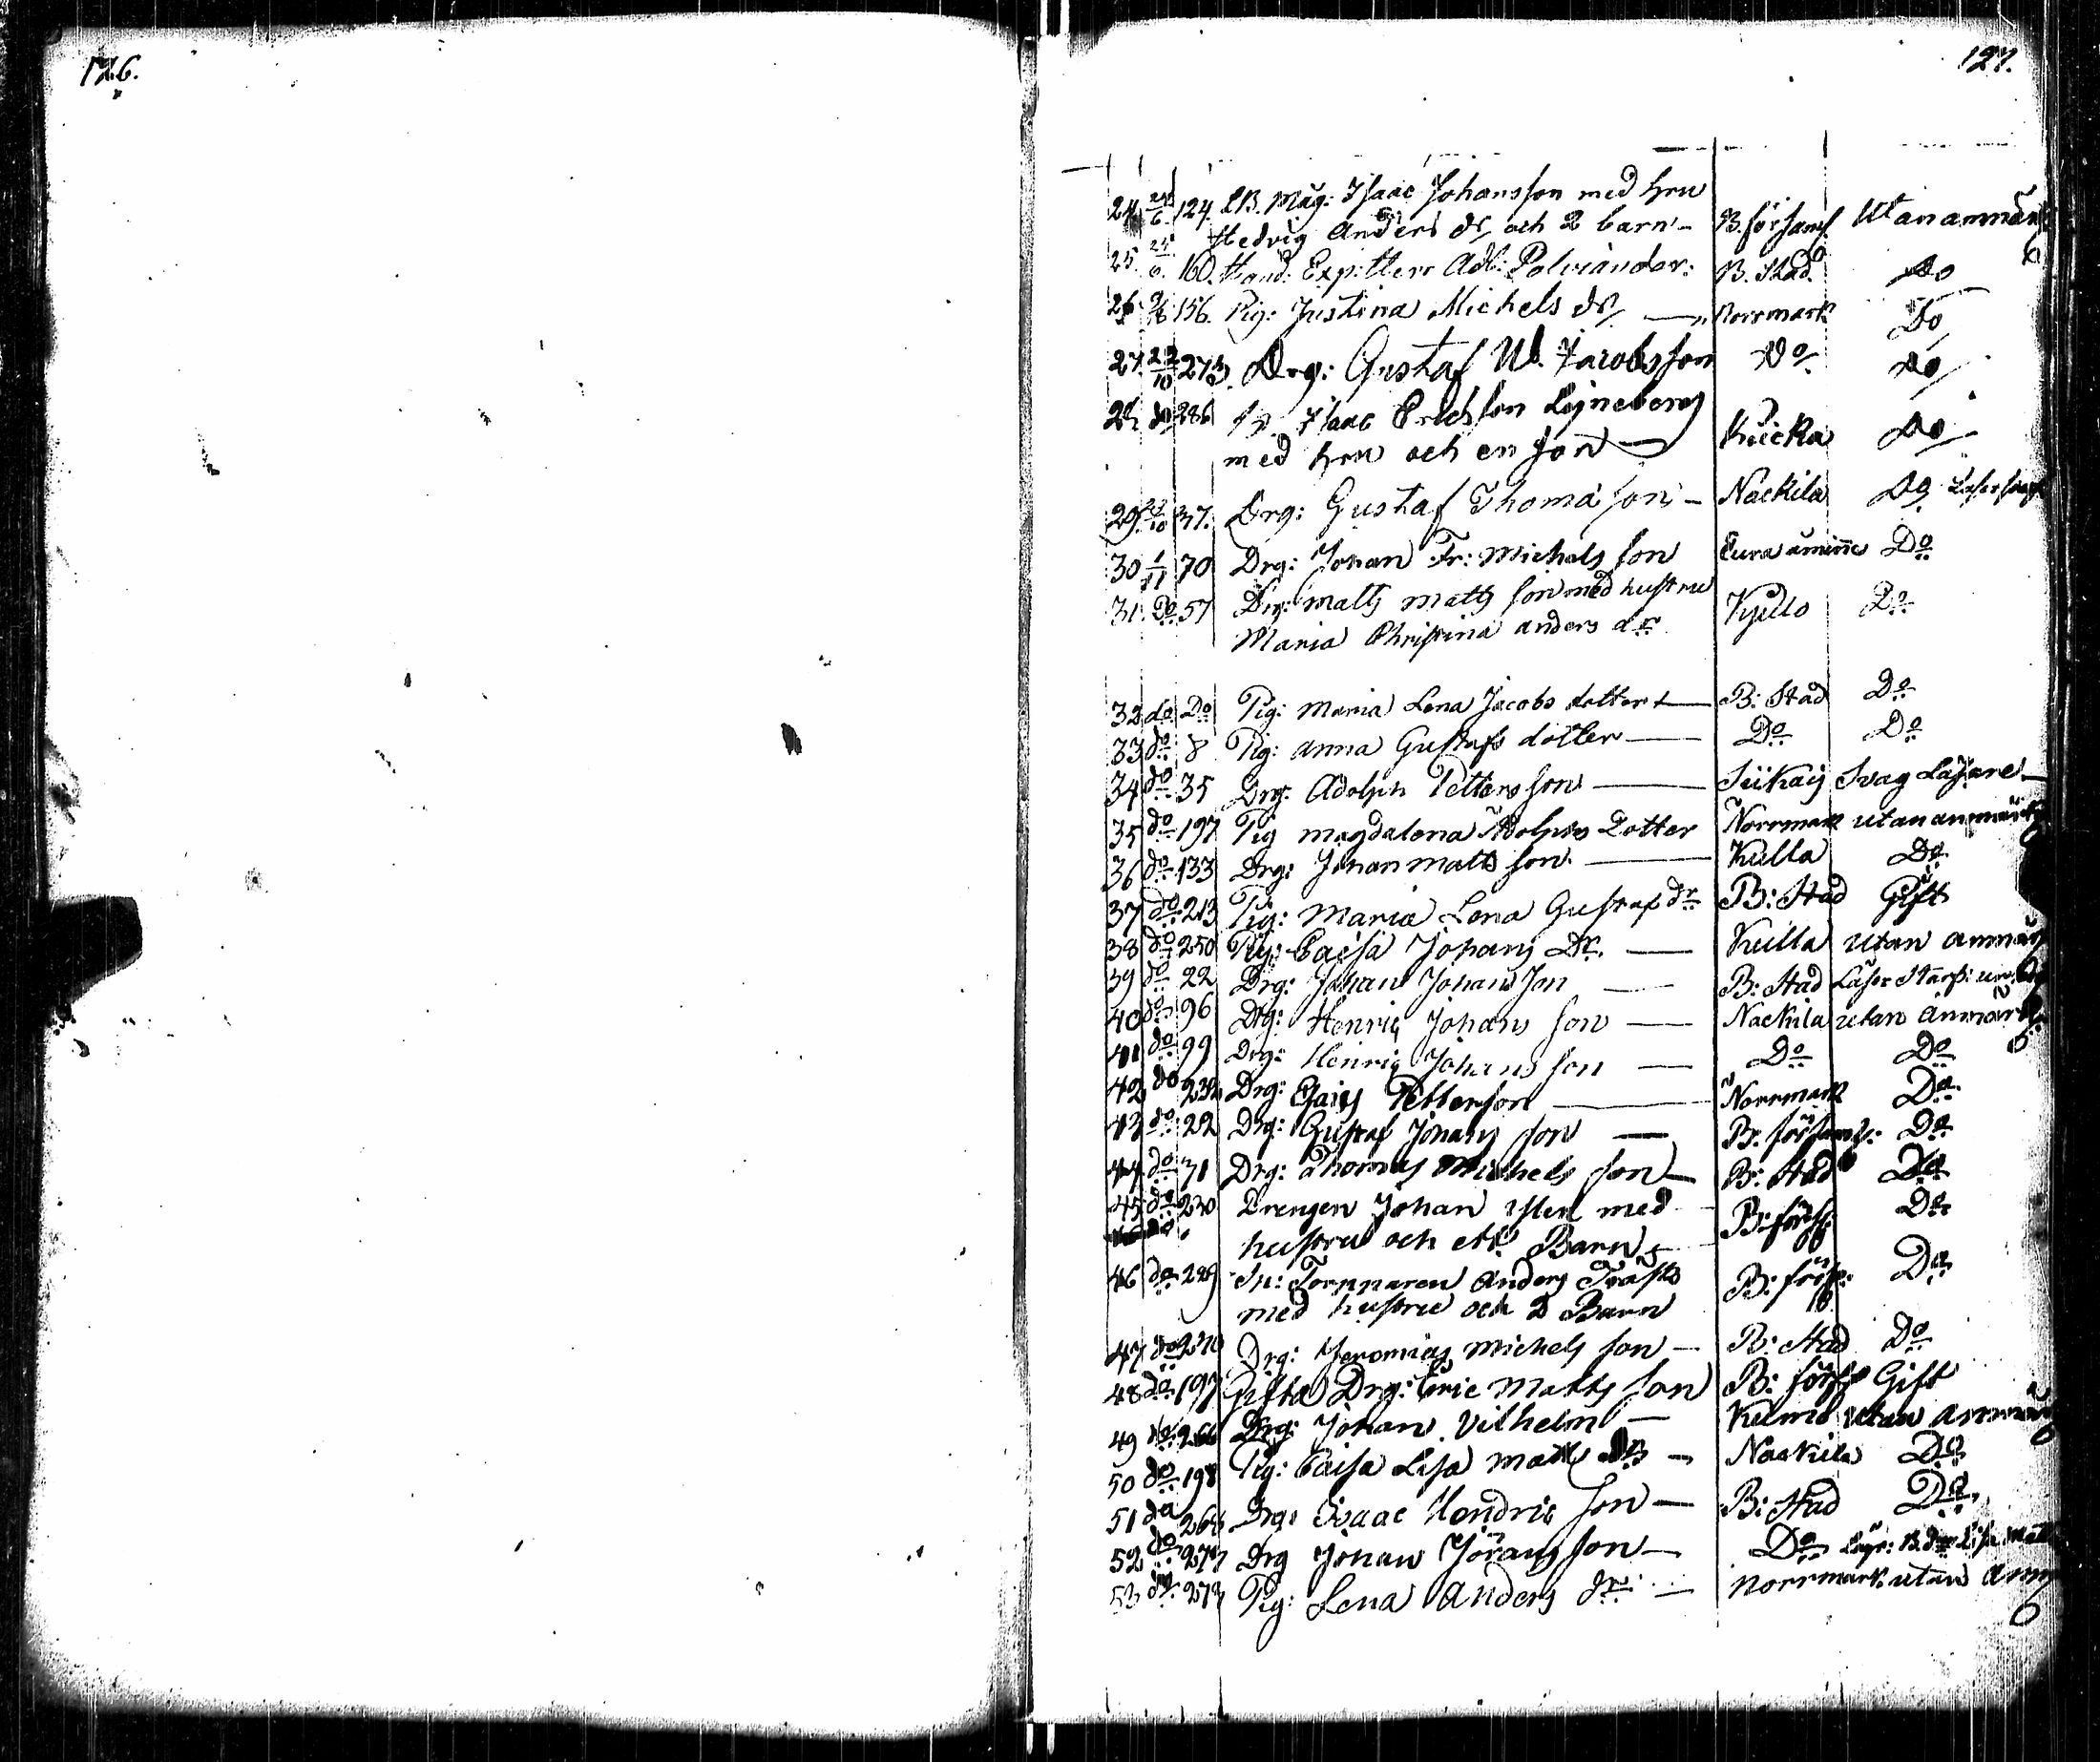 126.
127.
24. 24/6. 124. Isaac Johansson med hru
Hedvig Anders dr och 2 barn - B. församl. Utan anmärk
25. 25/6. 160. Hand: Exp: Herr Adl: Polviander: B. Stad. Do
26 156. Pig: Justina Michels dr Norrmark Do
27. 22/10 273. Drg: Gustaf W. Jacobsson Do Do
28 do 286 Isaac Ericksson
med hru och en son Kuicka Do
29 37. Drg: Gustaf Thomasson - Nackila Do
30 1/11 70 Drg: Johan Fr: Michels son Eura åminne Do
31. Do 57 Drg: Matts Matts son med hustru
Maria Christina anders dr Kjulo Do
32 do Do Pig: Maria Lena Jacobs dotter B: Stad Do
33 do 8 Pig: Anna Gustafs dotter Do Do
34 do 35 Drg: Adolph Petters son Svag Läsare
35 do 197 Pig Magdalena Adolphs Dotter Norrmark utan anmärk
36 do 133 Drg: Johan Matts son Kulla Do
37 do 213 Pig: Maria Lena Gustaf dr B: Stad Gift
38 do 250 Pig: Caisa Johans Dr. Kulla utan anmärk
39 do 22 Drg: Johan Johans son B: Stad Läser
40 do 96 Drg: Henric Johans son Nackila utan anmärk
41 do 99 Drg: Henric Johans son Do Do
42 do 232 Drg: Petterson Norrmark Do
43 do 22 Drg: Gustaf Johans son B. församl: Do
44 do 71 Drg: Thomas Michels son B: Stad Do
45 do 230 Drengen Johan med
hustru och ett Barn B: förs: Do
46 do 229 Torpparen Anders
med hustru och 2 Barn B: förs: Do
47 do 270 Drg: Jeremias Michels son B: Stad Do
48 do 197 Gifta Drg: Eric Matts son B: förs Gift
49 do 266 Drg: Johan Vilhelm Kumo utan anmärk
50 do 198 Pig: Caisa Lisa Matts dr Nackila Do
51 do 268 Drg: Isaac Hendric son B: Stad Do
52 do 277 Drg Johan Jörans son Do
53 do 273 Pig: Lena Anders dr Norrmark utan anm